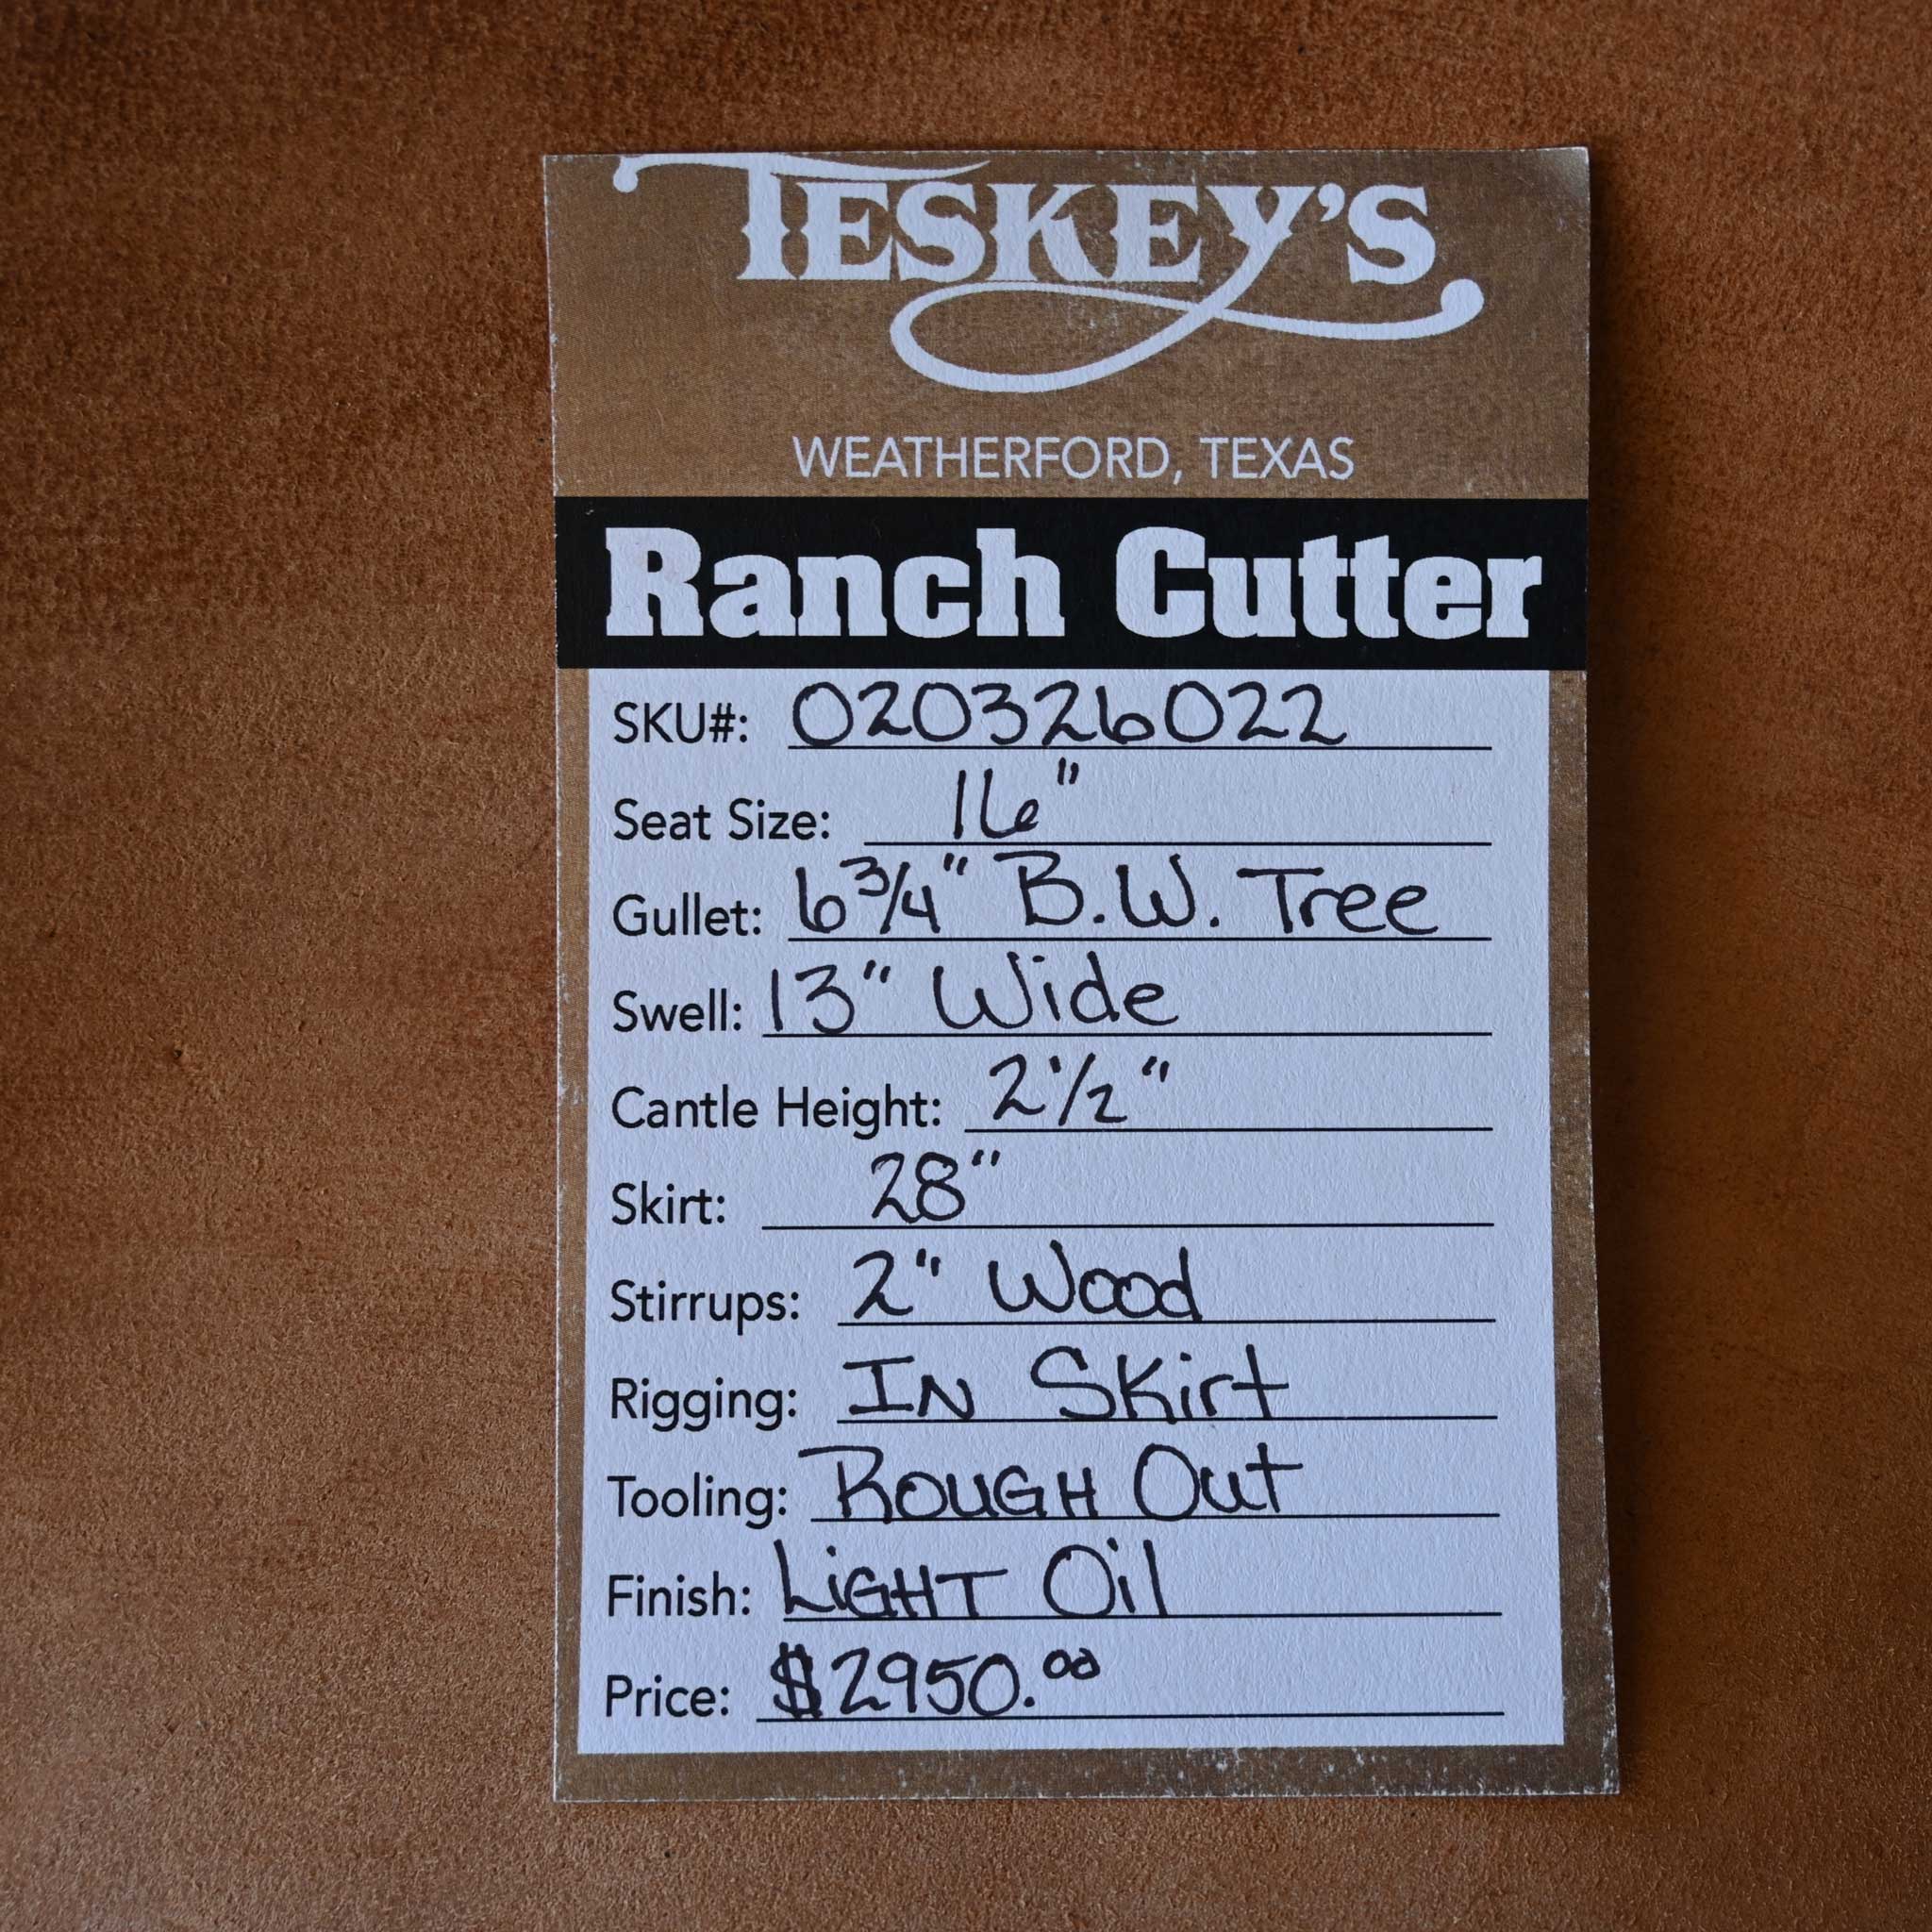 TESKEY'S
WEATHERFORD, TEXAS
Ranch Cutter
SKU#: 020326022
Seat Size: 16"
Gullet: 6 3/4" B.W. Tree
Swell: 13" Wide
Cantle Height: 2 1/2"
Skirt: 28"
Stirrups: 2" Wood
Rigging: IN SKirt
Tooling: ROUGH Out
Finish: LiGHT Oil
Price: $2950.00